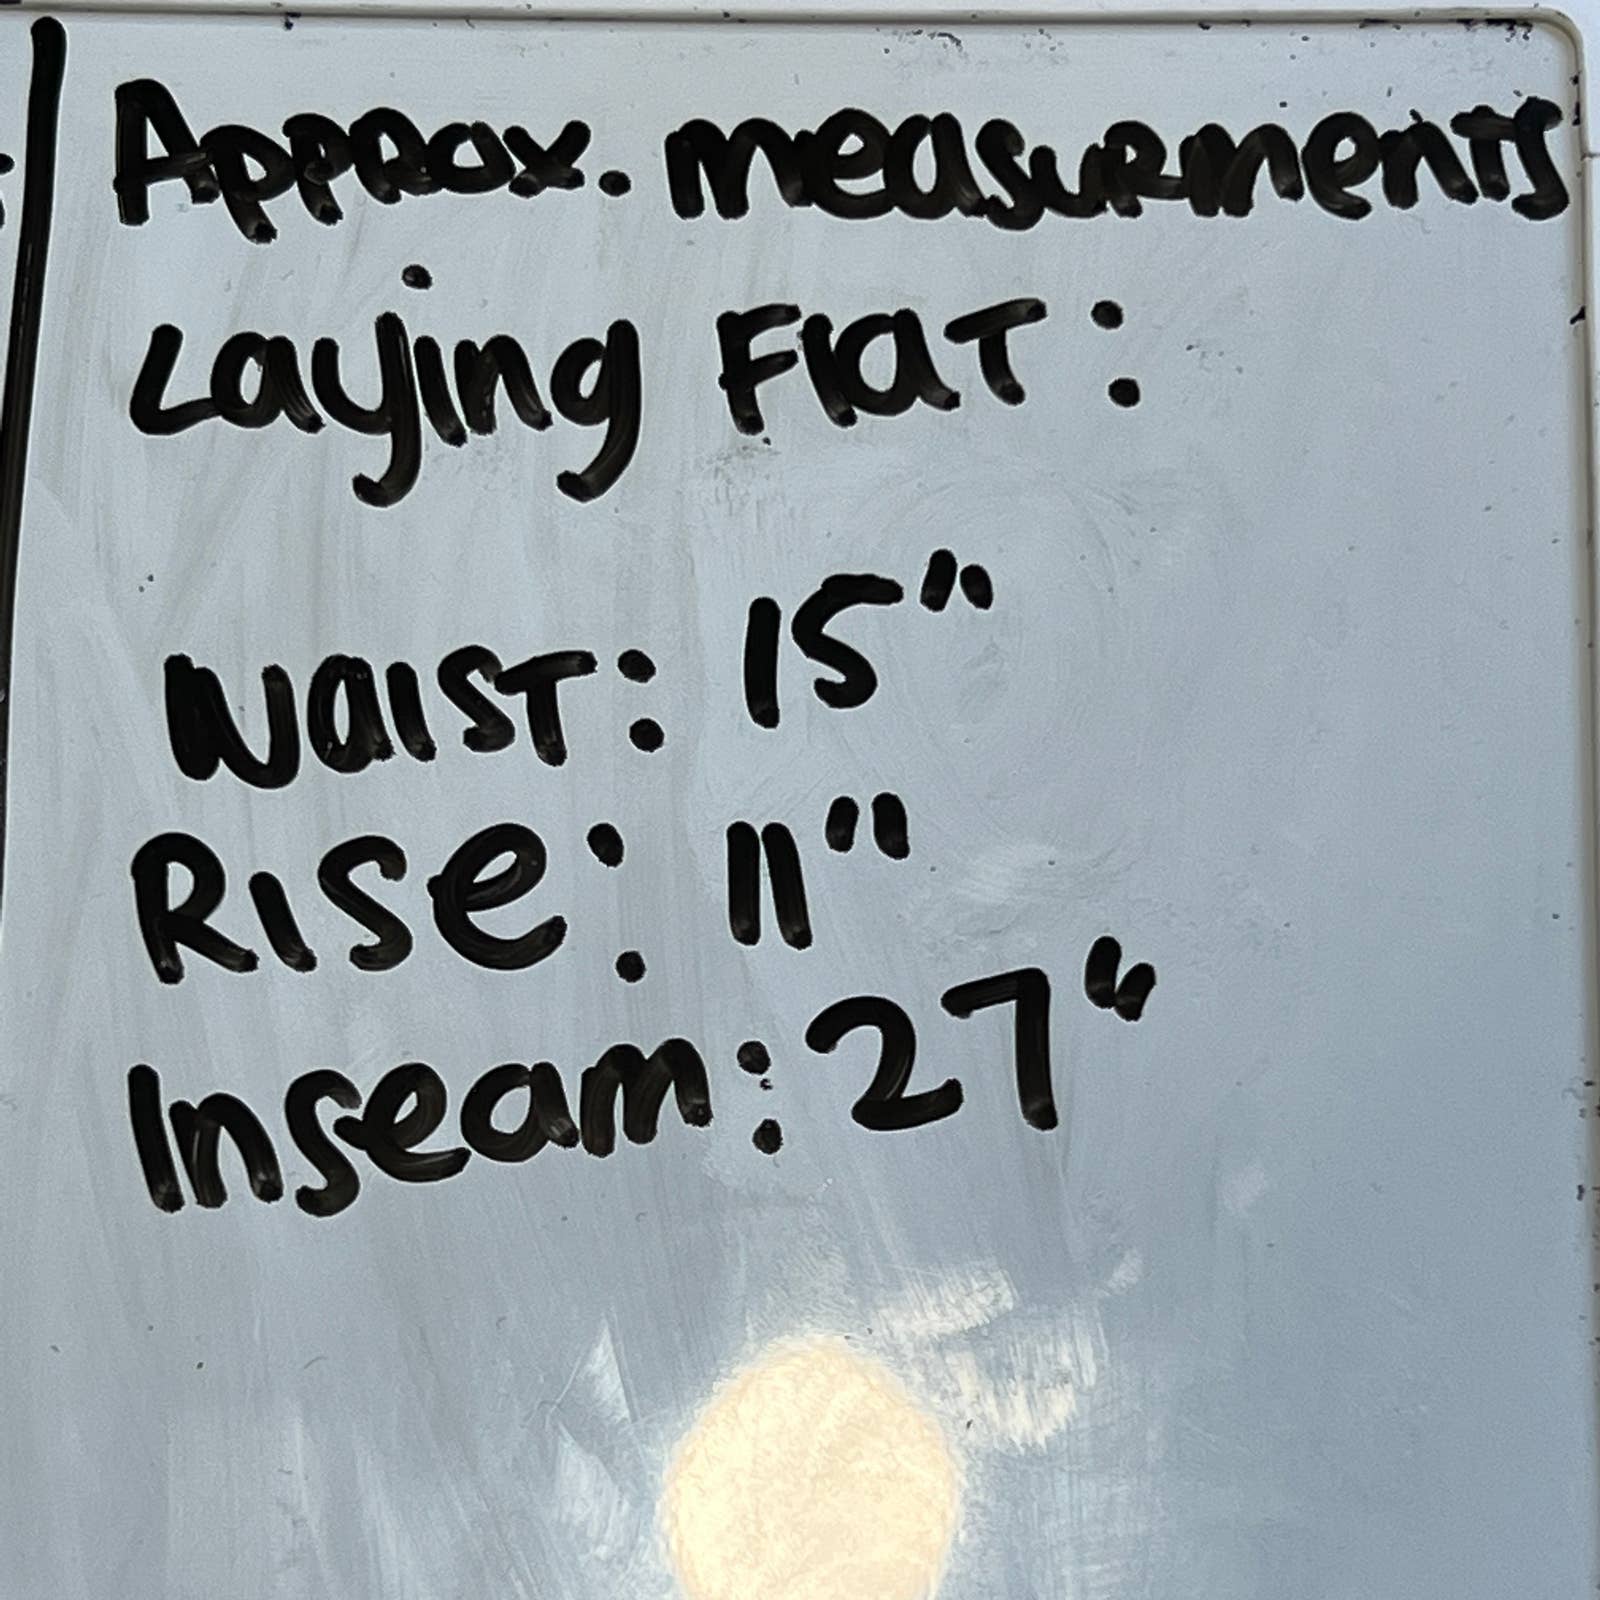 Approx. measurments
Laying Flat:
Waist: 15"
Rise: 11"
Inseam: 27"